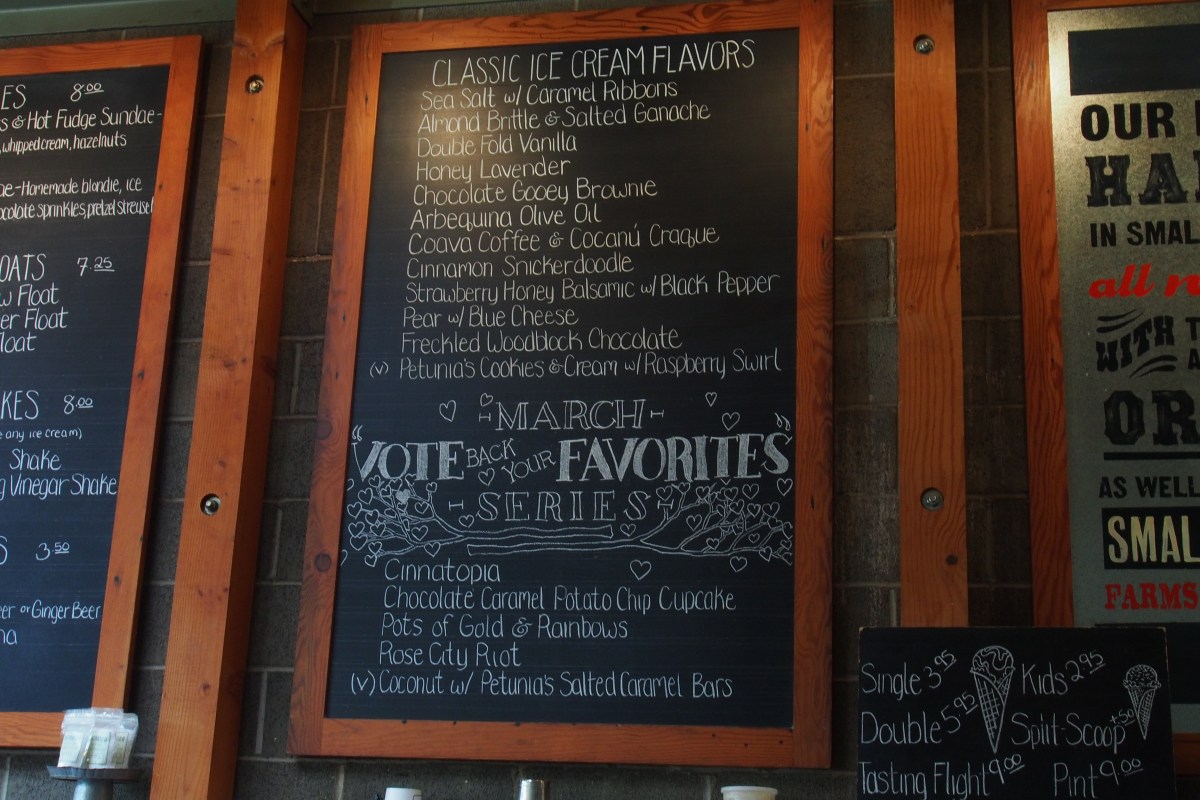 ES 8.00
s & Hot Fudge Sundae-
, whipped cream, hazelnuts
ae-Homemade blondie, ice
ocolate sprinkles, pretzel streusel
OATS 7.25
w Float
er Float
loat
KES 8.00
e any ice cream)
Shake
g Vinegar Shake
S 3.50
eer or Ginger Beer
na
CLASSIC ICE CREAM FLAVORS
Sea Salt w/ Caramel Ribbons
Almond Brittle & Salted Ganache
Double Fold Vanilla
Honey Lavender
Chocolate Gooey Brownie
Arbequina Olive Oil
Coava Coffee & Cocanú Craque
Cinnamon Snickerdoodle
Strawberry Honey Balsamic w/ Black Pepper
Pear w/ Blue Cheese
Freckled Woodblock Chocolate
(v) Petunia's Cookies & Cream w/ Raspberry Swirl
MARCH
"VOTE BACK YOUR FAVORITES"
SERIES
Cinnatopia
Chocolate Caramel Potato Chip Cupcake
Pots of Gold & Rainbows
Rose City Riot
(v) Coconut w/ Petunia's Salted Caramel Bars
OUR
HA
IN SMAL
all
WITH
OR
AS WELL
SMAL
FARMS
Single 3.95 Kids 2.95
Double 5.95 Split-Scoop +.50
Tasting Flight 9.00 Pint 9.00